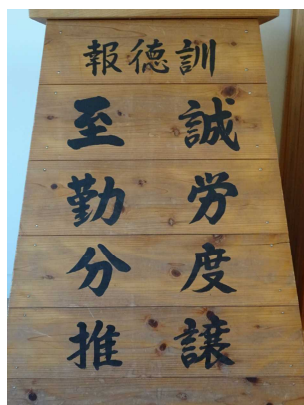 報徳訓
至誠
勤労
分度
推譲